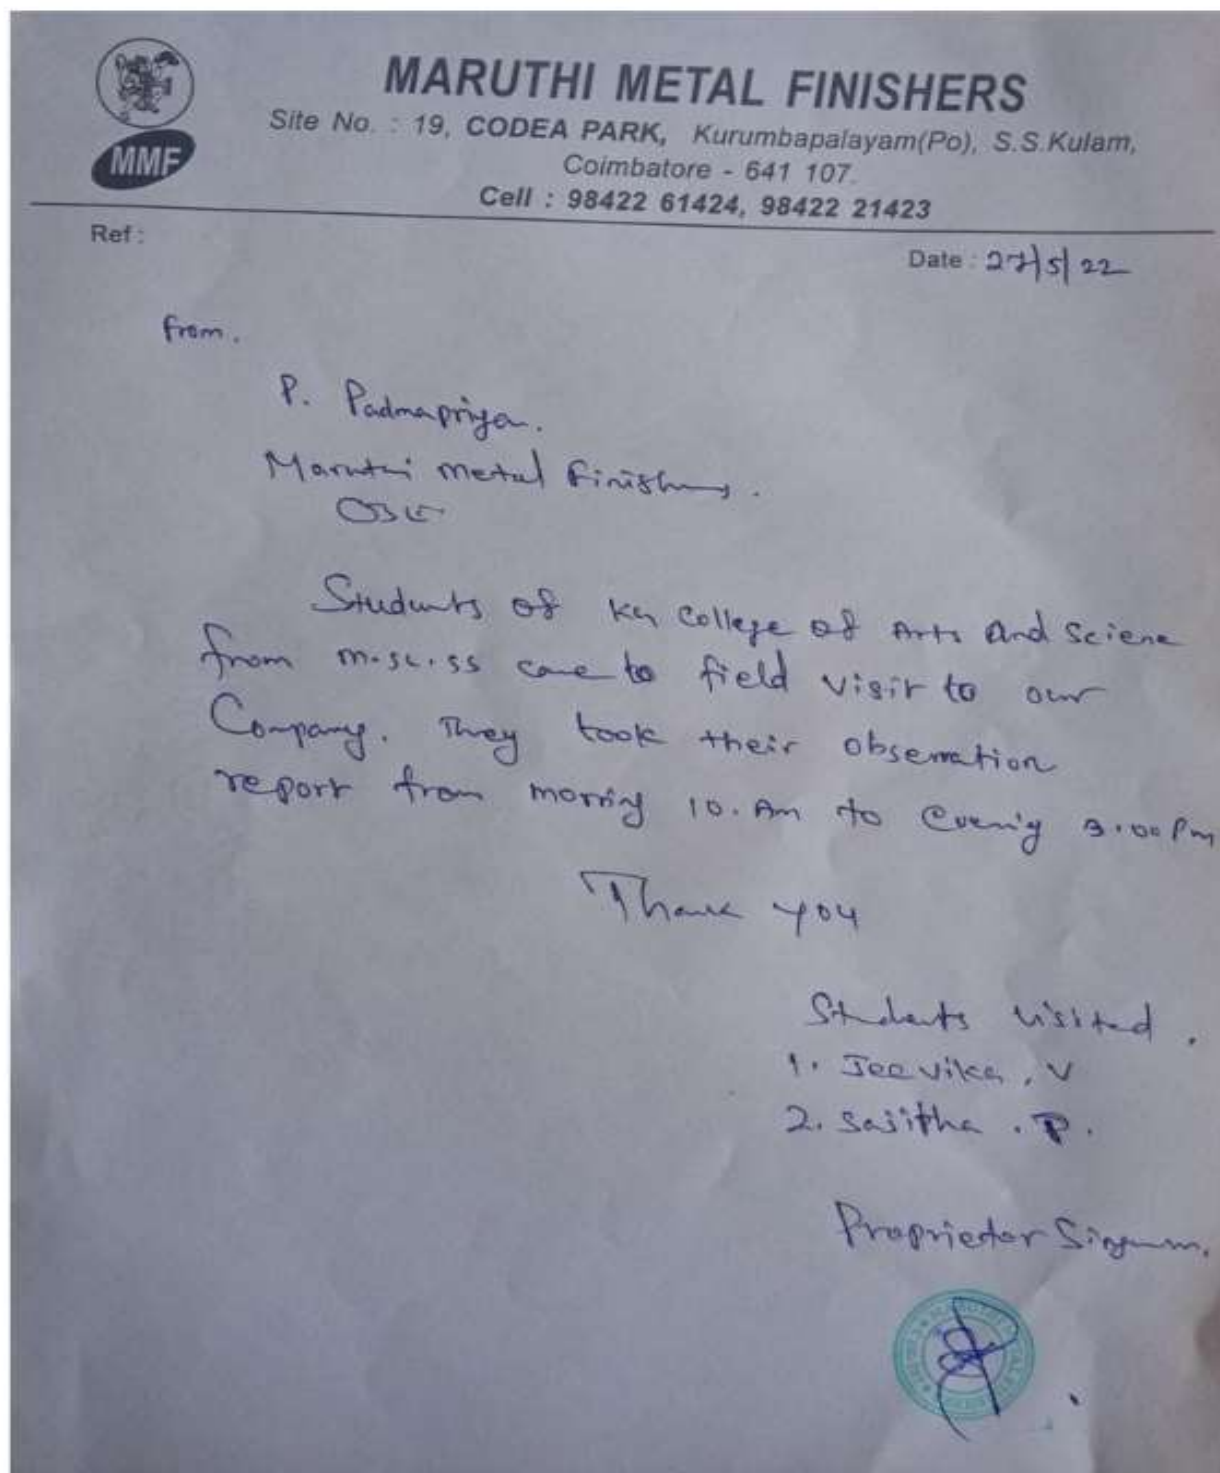 MARUTHI METAL FINISHERS
Site No. : 19, CODEA PARK, Kurumbapalayam(Po), S.S.Kulam,
Coimbatore - 641 107.
Cell : 98422 61424, 98422 21423
MMF
Ref :
Date : 27/5/22
from.
P. Padmapriya.
Maruthi metal Finishers.
Students of KG College of Arts And Sciene
from M.sc.ss came to field visit to our
Company. They took their observation
report from morning 10.Am to Evenig 3.00 Pm
Thank you
Students visited.
1. Jeevika . V
2. Sajitha . P.
Proprietor
MARUTHI